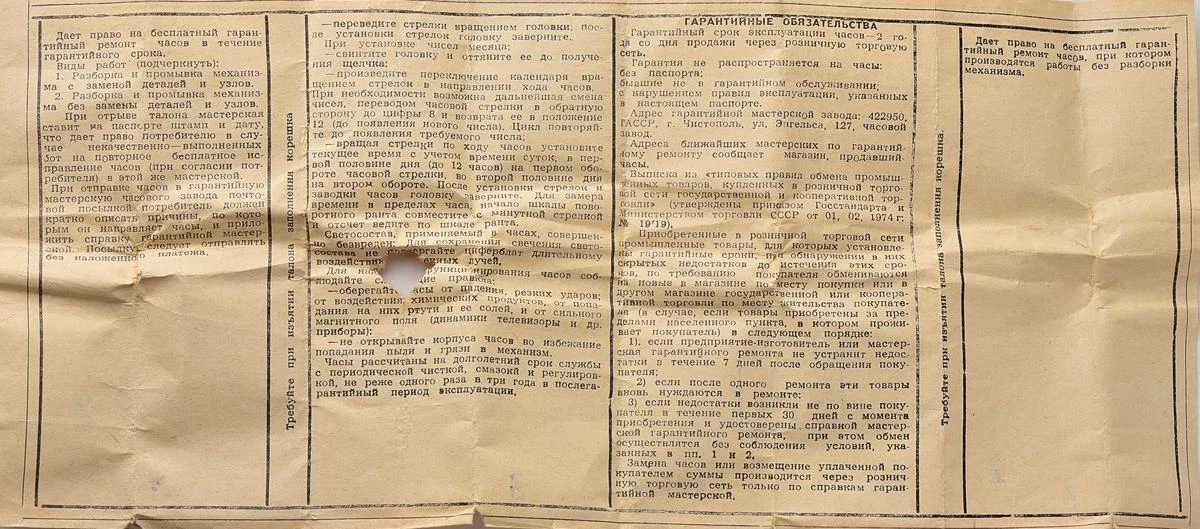 Дает право на бесплатный гаран-
тийный ремонт часов в течение
гарантийного срока.
Виды работ (подчеркнуть):
1. Разборка и промывка механиз-
ма с заменой деталей и узлов.
2. Разборка и промывка механиз-
ма без замены деталей и узлов.
При отрыве талона мастерская
ставит на паспорте штамп и дату,
что дает право потребителю в слу-
чае некачественно—выполненных
бот на повторное бесплатное ис-
правление часов (при согласии пот-
ребителя) в этой же мастерской.
При отправке часов в гарантийную
мастерскую часового завода почто-
вой посылкой потребитель должен
кратко описать причины, по кото-
рым он направляет часы, и прило-
жить справку гарантийной мастер-
ской. Посылку следует отправлять
без наложенного платежа.
Требуйте при изъятии талона заполнения корешка
—переведите стрелки вращением головки; пос-
ле установки стрелок головку заверните.
При установке чисел месяца:
—свинтите головку и оттяните ее до получе-
ния щелчка;
—произведите переключение календаря вра-
щением стрелок в направлении хода часов.
При необходимости возможна дальнейшая смена
чисел, переводом часовой стрелки в обратную
сторону до цифры 8 и возврата ее в положение
12 (до появления нового числа). Цикл повторяй-
те до появления требуемого числа;
—вращая стрелки по ходу часов установите
текущее время с учетом времени суток; в пер-
вой половине дня (до 12 часов) на первом обо-
роте часовой стрелки, во второй половине дня
на втором обороте. После установки стрелок и
заводки часов головку заверните. Для замера
времени в пределах часа, начало шкалы пово-
ротного ранта совместите с минутной стрелкой
и отсчет ведите по шкале ранта.
Светосостав, применяемый в часах, совершен-
но безвреден: Для сохранения свечения свето-
состава не подвергайте циферблат длительному
воздействию лучей.
Для функционирования часов соб-
людайте правила:
—оберегайте часы от падения, резких ударов;
от воздействия химических продуктов, от попа-
дания на них ртути и ее солей, и от сильного
магнитного поля (динамики телевизоры и др.
приборы);
—не открывайте корпуса часов во избежание
попадания пыли и грязи в механизм.
Часы рассчитаны на долголетний срок службы
с периодической чисткой, смазкой и регулиров-
кой, не реже одного раза в три года в послега-
рантийный период эксплуатации.
ГАРАНТИЙНЫЕ ОБЯЗАТЕЛЬСТВА
Гарантийный срок эксплуатации часов—2 го-
да со дня продажи через розничную торговую
сеть.
Гарантия не распространяется на часы:
без паспорта;
бывшие не в гарантийном обслуживании;
с нарушением правил эксплуатации, указанных
в настоящем паспорте.
Адрес гарантийной мастерской завода: 422950,
ТАССР, г. Чистополь, ул, Энгельса, 127, часовой
завод.
Адреса ближайших мастерских по гарантий-
ному ремонту сообщает магазин, продавший-
часы.
Выписка из «типовых правил обмена промыш-
ленных товаров, купленных в розничной торго-
вой сети государственной и кооперативной тор-
говли» (утверждены приказом Госстандарта и
Министерством торговли СССР от 01, 02, 1974 г:
№ 19'19).
Приобретенные в розничной торговой сети
промышленные товары, для которых установле-
ны гарантийные сроки, при обнаружении в них
скрытых недостатков до истечения этих сро-
ков, по требованию покупателя обмениваются
на новые в магазине по месту покупки или в
другом магазине государственной или коопера-
тивной торговли по месту жительства покупате-
ля (в случае, если товары приобретены за пре-
делами населенного пункта, в котором прожи-
вает покупатель) в следующем порядке:
1). если предприятие-изготовитель или мастер-
ская гарантийного ремонта не устранит недос-
татки в течение 7 дней после обращения поку-
пателя;
2) если после одного ремонта эти товары
вновь нуждаются в ремонте:
3) если недостатки возникли не по вине поку-
пателя в течение первых 30 дней с момента
приобретения и удостоверены справкой мастер-
ской гарантийного ремонта, при этом обмен
осуществляется без соблюдения условий, ука-
занных в пп. 1 и 2.
Замена часов или возмещение уплаченной по-
купателем суммы производится через рознич-
ную торговую сеть только по справкам гаран-
тийной мастерской.
Требуйте при изъятии талона заполнения корешка.
Дает право на бесплатный гаран-
тийный ремонт часов, при котором
производятся работы без разборки
механизма.